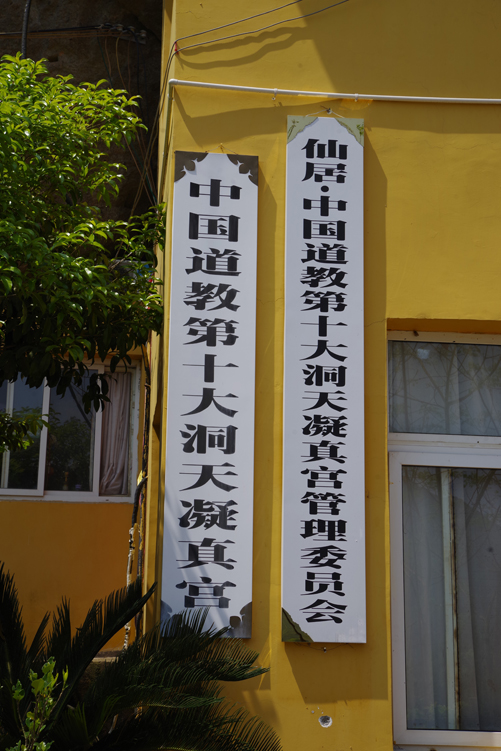 中国道教第十大洞天凝真宫
仙居·中国道教第十大洞天凝真宫管理委员会